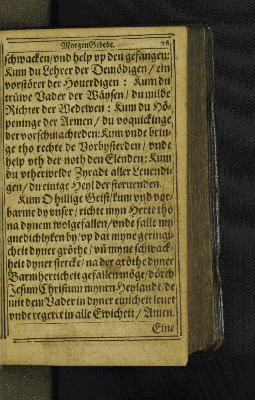 MorgenGebede. 78
schwacken/ vnd help vp den gefangen:
Kum du Lehrer der Demödigen / ein
vorstörer der Houerdigen : Kum du
trüwe Vader der Wäysen/ du milde
Richter der Wedewen : Kum du Hö-
peninge der Armen / du voquickinge
der vorschmachteden: Kum vnde brin-
ge tho rechte de Vorbysterden / vnde
help vth der noth den Elenden: Kum
du vtherwelde Zyradt aller Leuendi-
gen / du einige Heyl der steruenden.
Kum O hillige Geist/ kum vnd vor-
barme dy vnser / richte myn Herte tho
na dynem wolgefallen/ vnde falle my
gnedichlyken by/ vp dat myne geringi-
cheit dyner gröthe / vñ myne schwack-
heit dyner stercke / na der gröthe dyner
Barmherticheit gefallen möge/ dörch
Jesum Christum mynen Heylandt / de
mit dem Vader in dyner einicheit leuet
vnde regeret in alle Ewicheit / Amen.
Eine